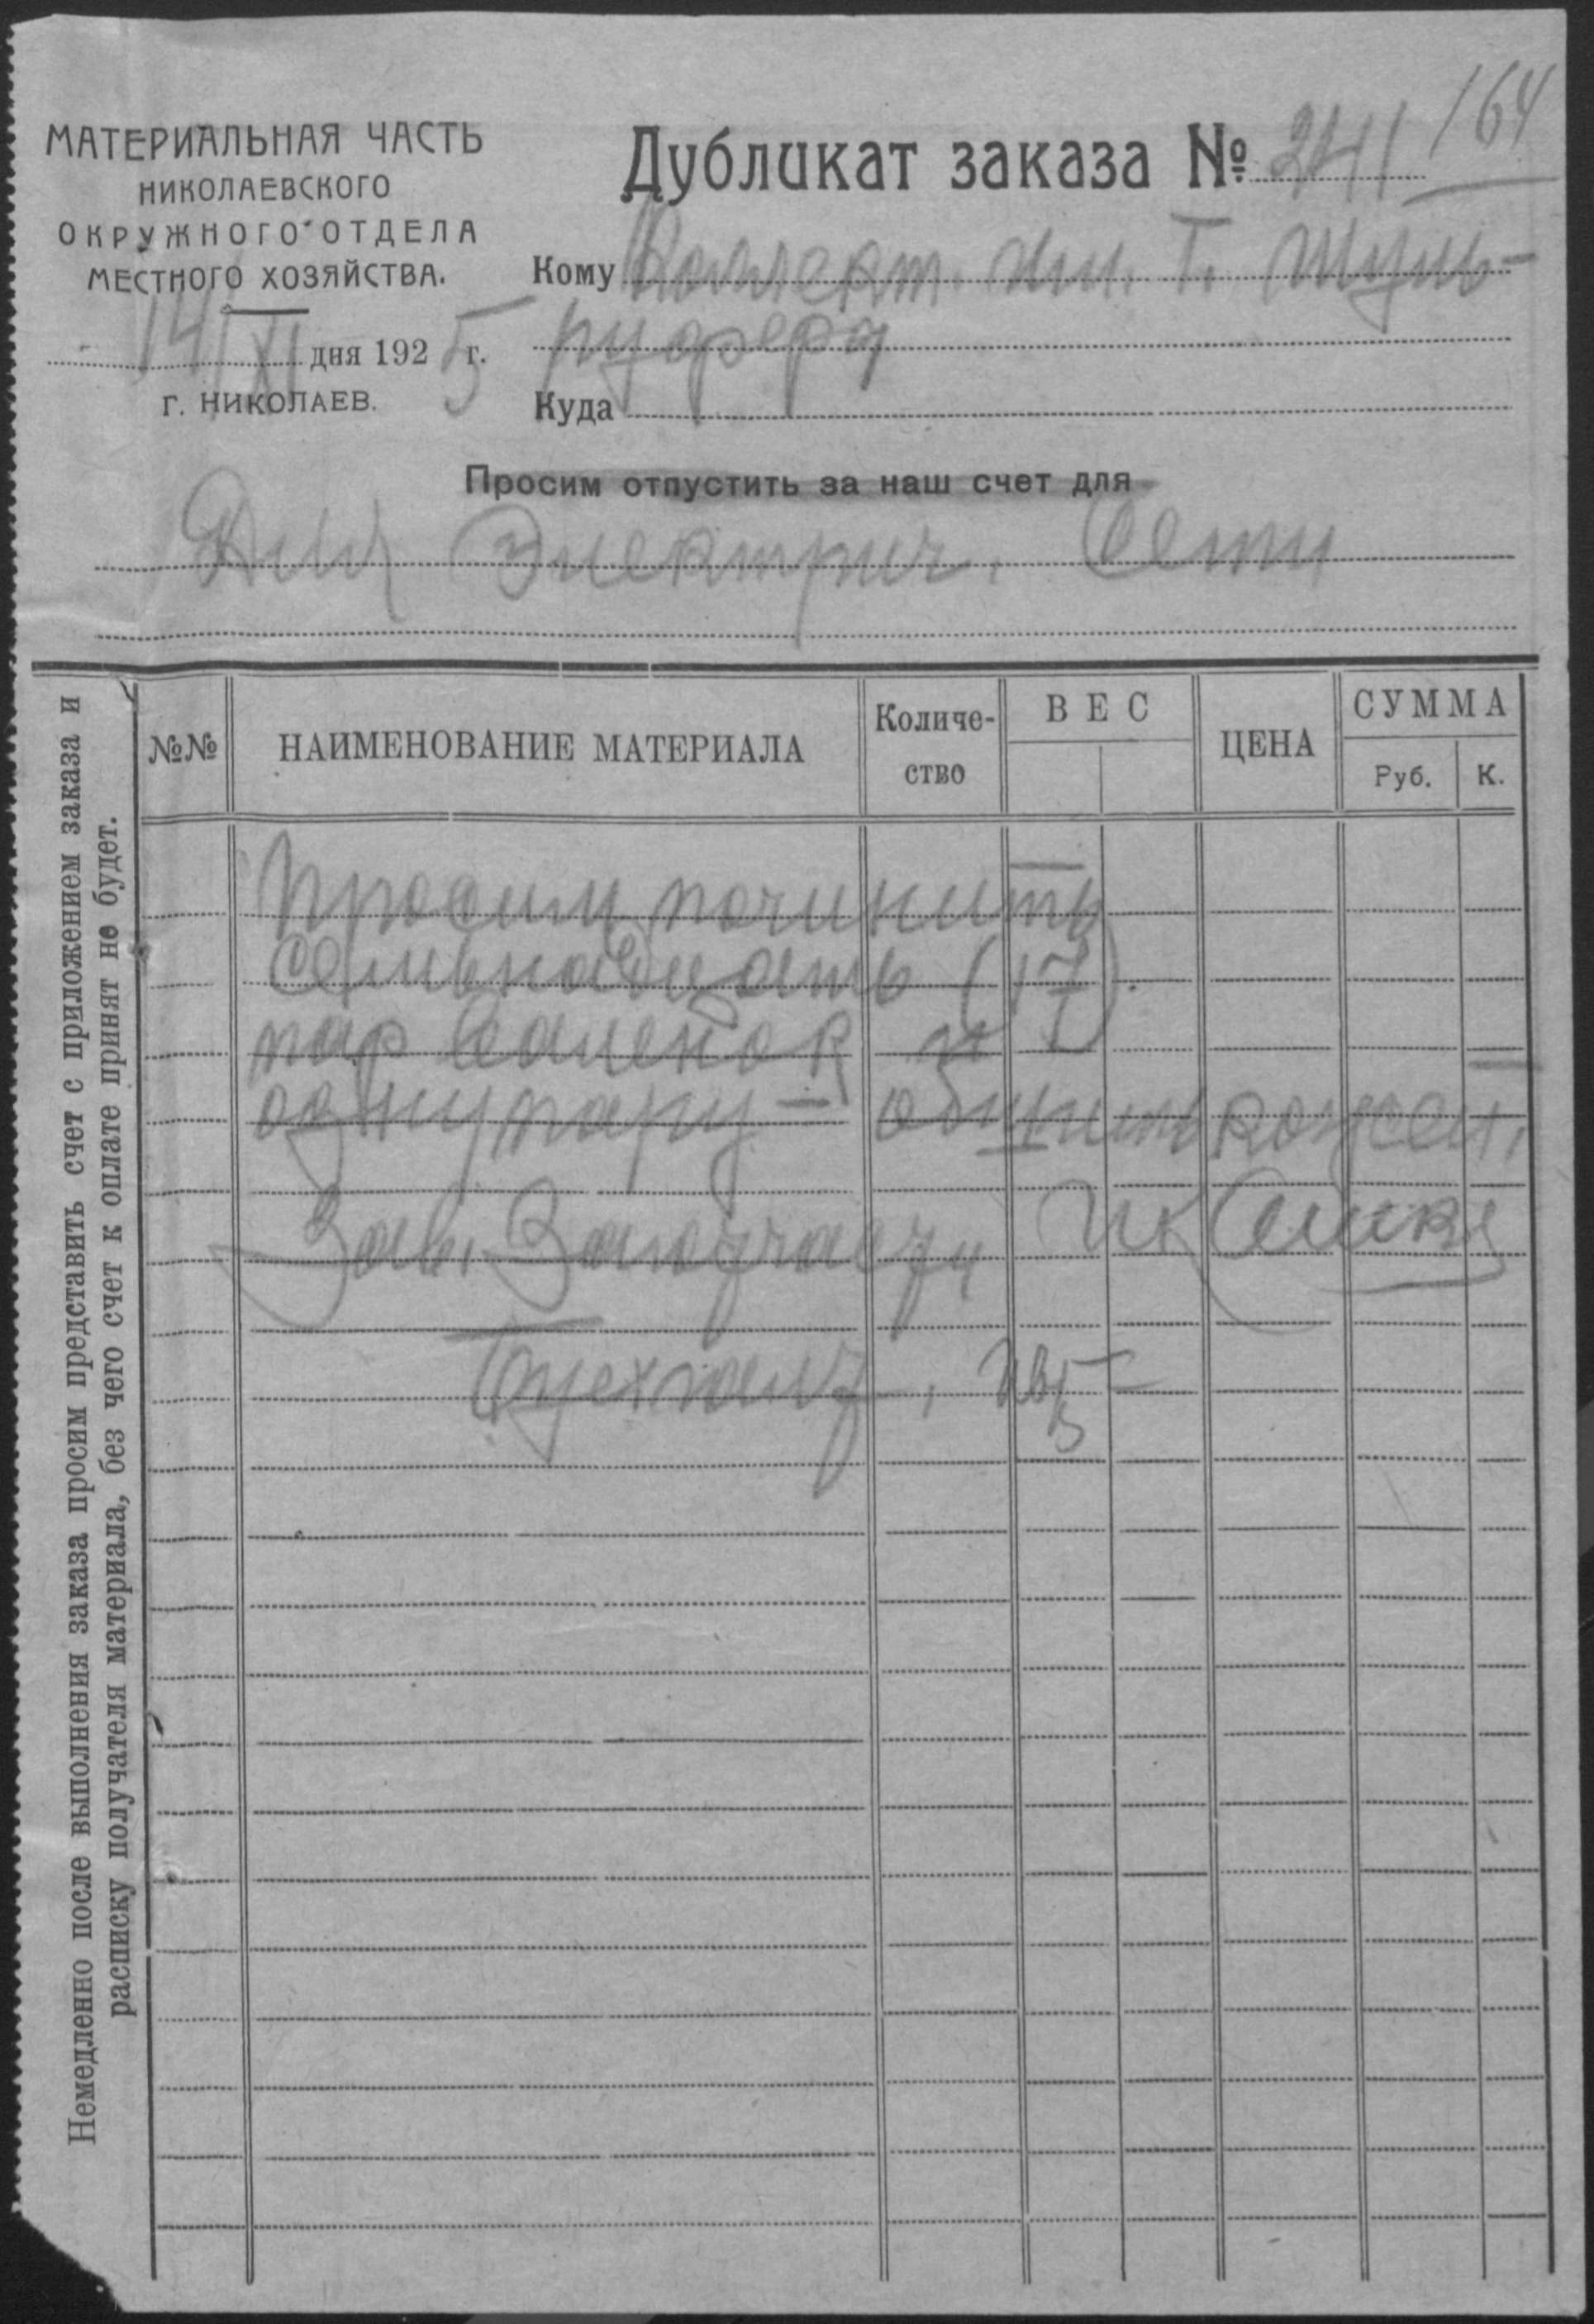 164
МАТЕРИАЛЬНАЯ ЧАСТЬ
НИКОЛАЕВСКОГО
ОКРУЖНОГО ОТДЕЛА
МЕСТНОГО ХОЗЯЙСТВА.
14/XI дня 1925 г.
Г. НИКОЛАЕВ.
Дубликат заказа № 2411
Кому Коллект. им. Т. Шуль-
Куда
Просим отпустить за наш счет для
Электрич. Сети
№№ НАИМЕНОВАНИЕ МАТЕРИАЛА Количе-ство ВЕС ЦЕНА СУММА Руб. К.
Просим починить
семьнадцать (17)
пар валенок и 1
одну пару — обшить кожей,
Зав. Матчастью
Немедленно после выполнения заказа просим представить счет с приложением заказа и
расписку получателя материала, без чего счет к оплате принят не будет.